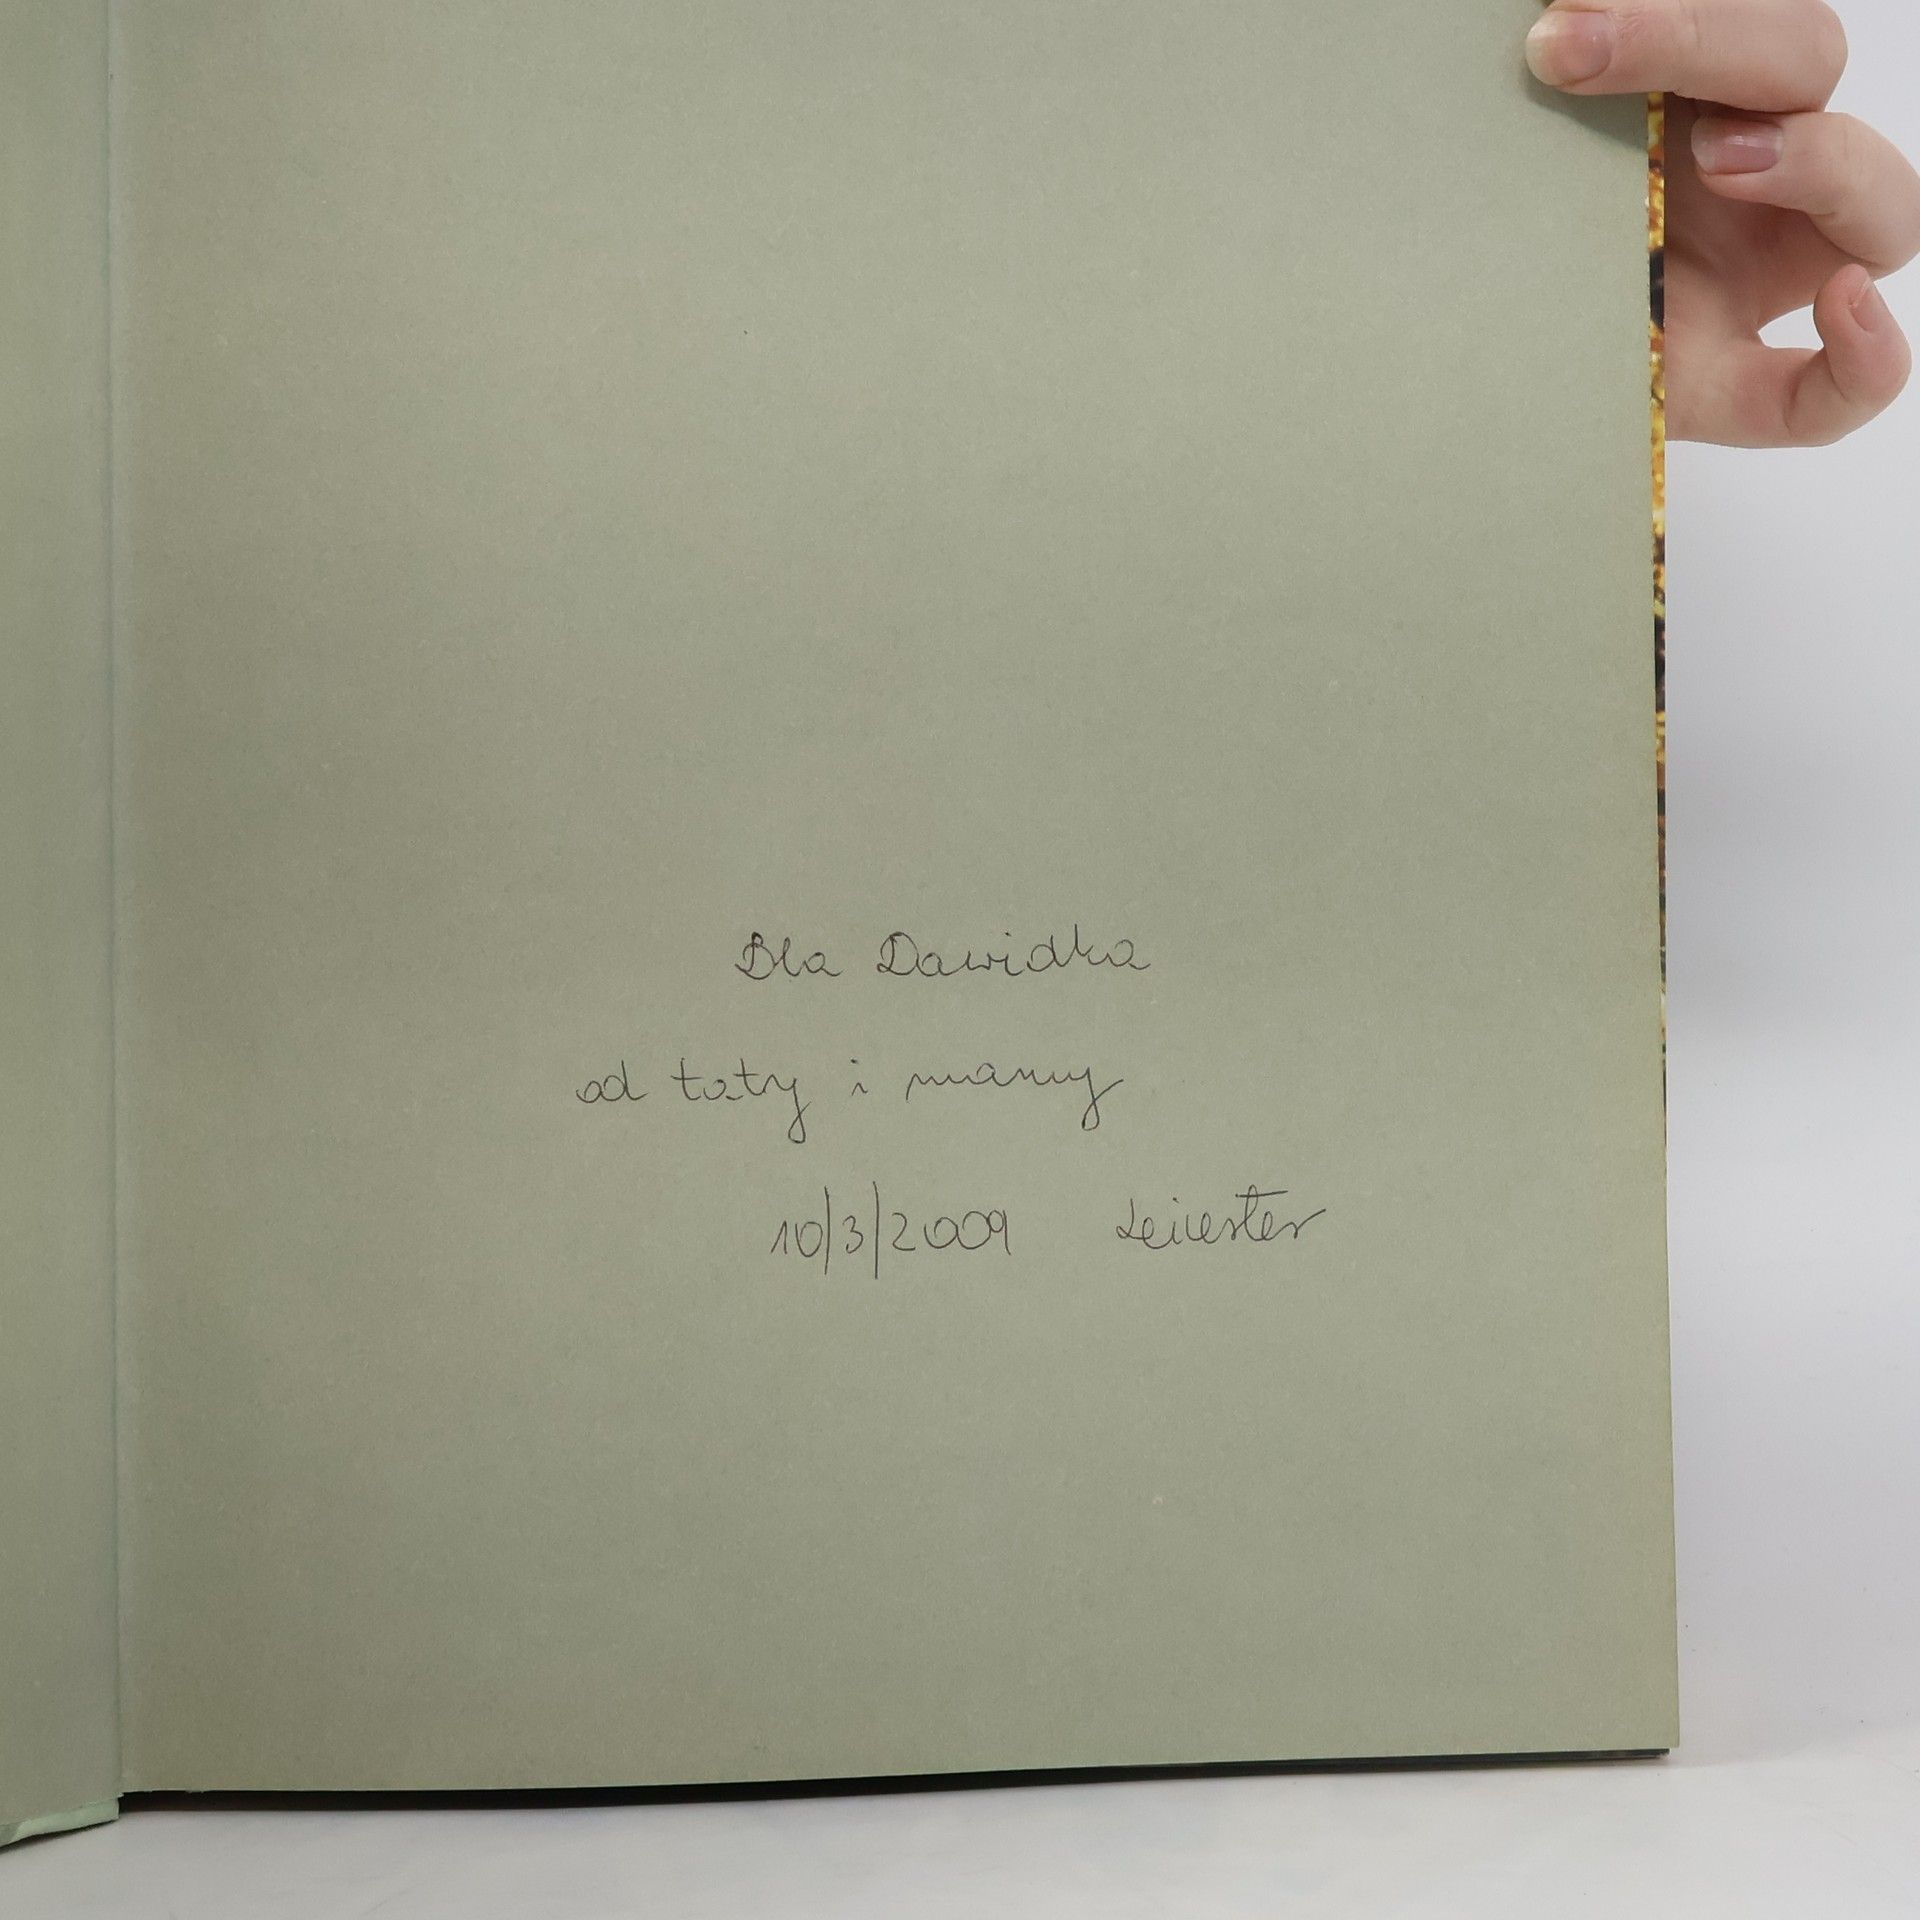 Dla Dawidka
od taty i mamy
10/3/2009 Leicester